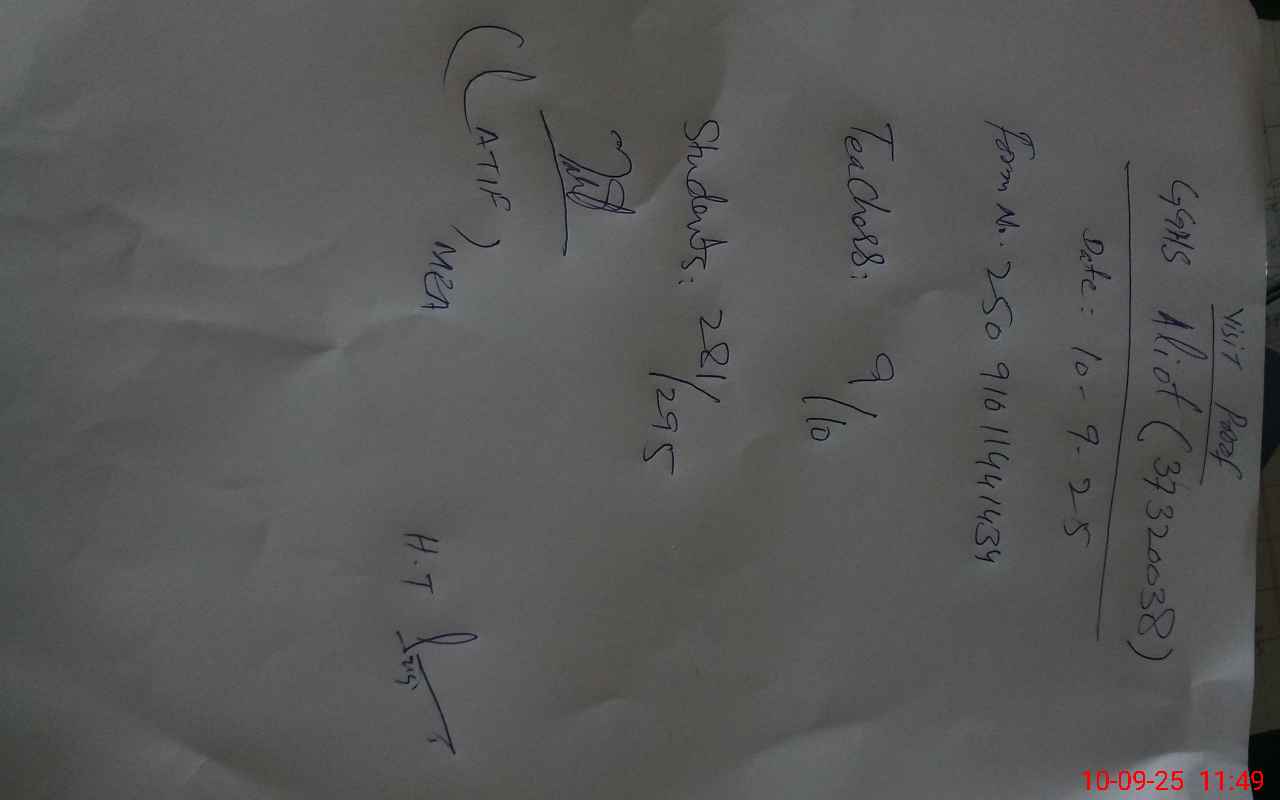 Visit Proof
GGHS Aliot (37320038)
Date: 10-9-25
Form No. 250 910 11441434
Teachers: 9/10
Students: 281/295
(LATIF)
MEA
H.T
10-09-25 11:49